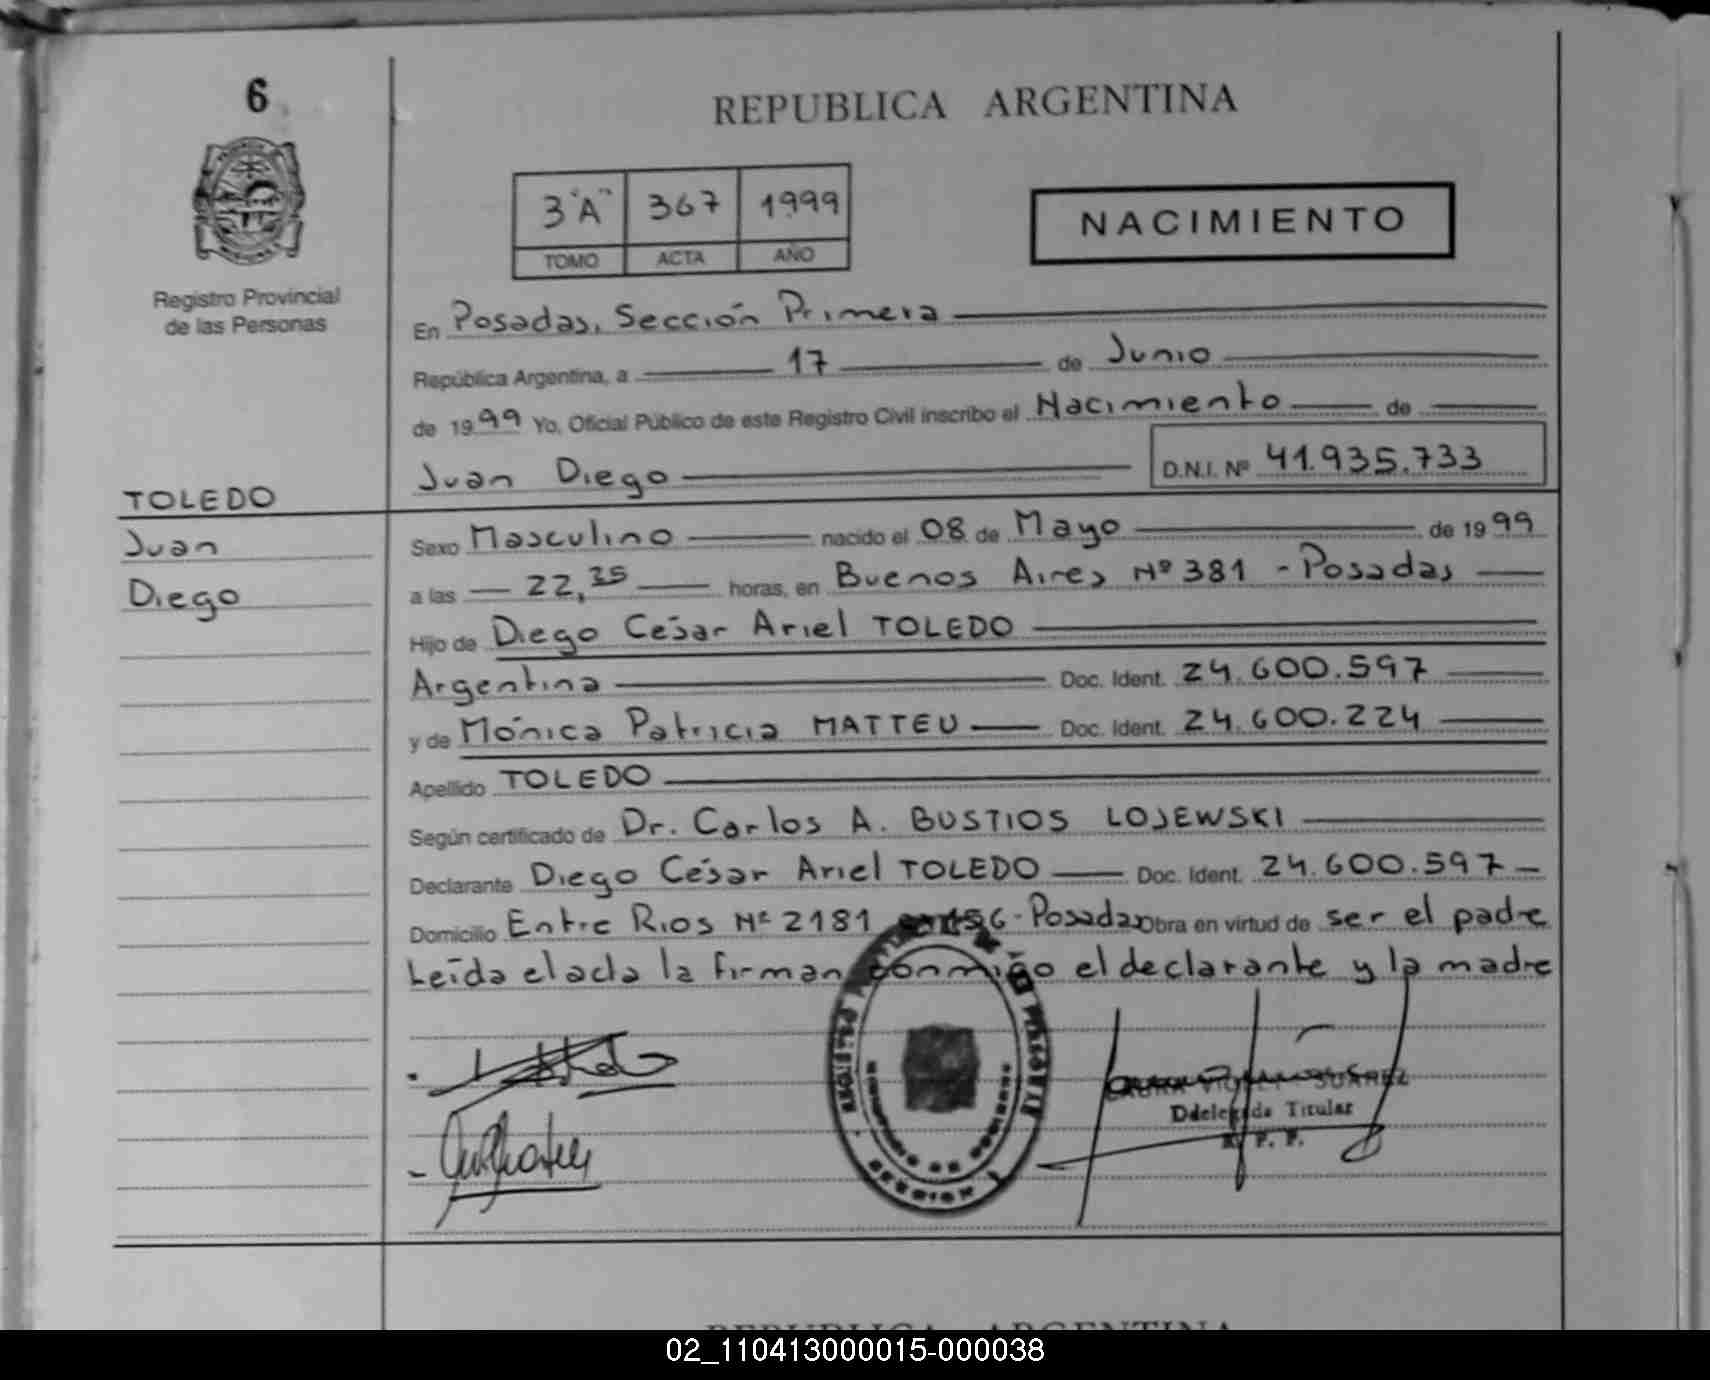 6
REPUBLICA ARGENTINA
3 "A" 367 1999
TOMO ACTA AÑO
NACIMIENTO
Registro Provincial
de las Personas
En Posadas, Sección Primera
República Argentina, a 17 de Junio
de 1999 Yo, Oficial Público de este Registro Civil inscribo el Nacimiento de
Juan Diego D.N.I. Nº 41.935.733
TOLEDO
Juan
Diego
Sexo Masculino nacido el 08 de Mayo de 1999
a las 22,35 horas, en Buenos Aires Nº 381 - Posadas
Hijo de Diego César Ariel TOLEDO
Argentina Doc. Ident. 24.600.597
y de Mónica Patricia MATTEU Doc. Ident. 24.600.224
Apellido TOLEDO
Según certificado de Dr. Carlos A. BUSTIOS LOJEWSKI
Declarante Diego César Ariel TOLEDO Doc. Ident. 24.600.597
Domicilio Entre Rios Nº 2181 - Posadas Obra en virtud de ser el padre
Leída el acta la firman conmigo el declarante y la madre
SUAREZ
Titular
SECCION
02_110413000015-000038